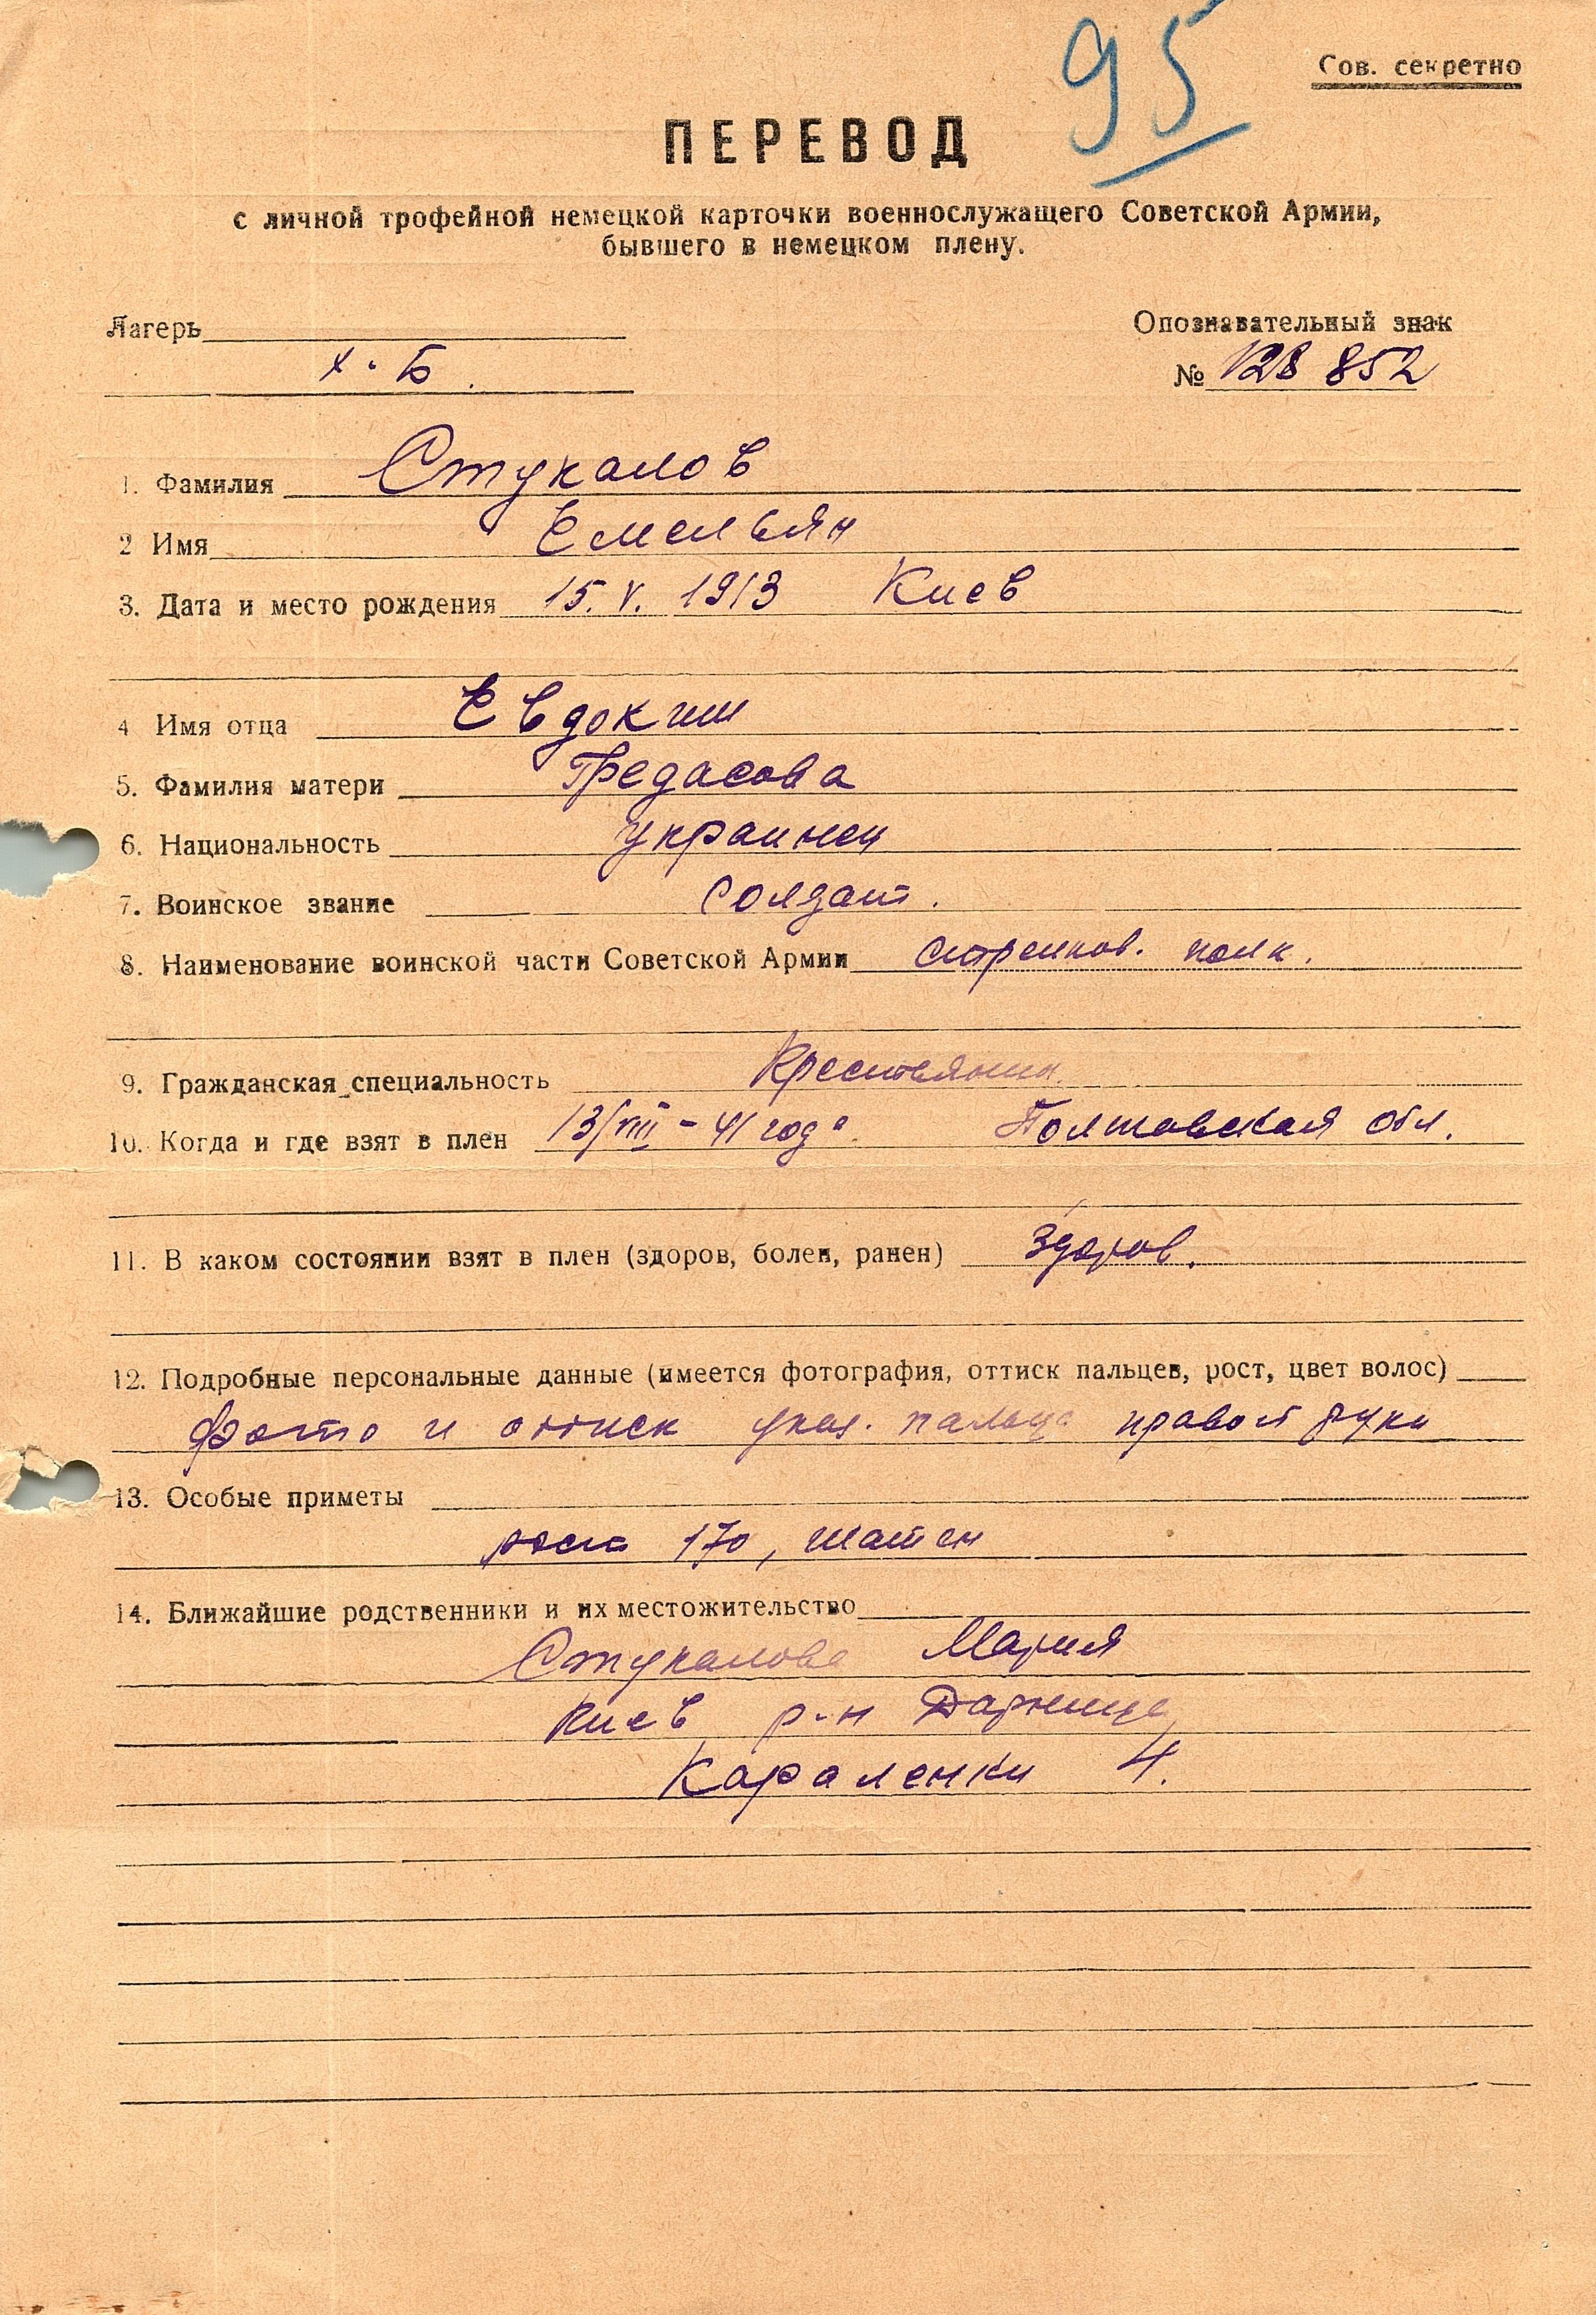 95
Сов. секретно
ПЕРЕВОД
с личной трофейной немецкой карточки военнослужащего Советской Армии,
бывшего в немецком плену.
Лагерь
X-Б.
Опознавательный знак
№ 128 852
1. Фамилия Стукалов
2 Имя Емельян
3. Дата и место рождения 15. V. 1913 Киев
4 Имя отца Евдоким
5. Фамилия матери
6. Национальность украинец
7. Воинское звание Солдат.
8. Наименование воинской части Советской Армии стрелков. полк.
9. Гражданская специальность Крестьянин.
10. Когда и где взят в плен 13/VIII-41 года. Полтавская обл.
11. В каком состоянии взят в плен (здоров, болен, ранен) Здоров.
12. Подробные персональные данные (имеется фотография, оттиск пальцев, рост, цвет волос)
Фото и оттиск указ. пальца правой руки
13. Особые приметы
рост 170, шатен
14. Ближайшие родственники и их местожительство
Стукалова Мария
Киев р-н Дарница
Караленки 4.